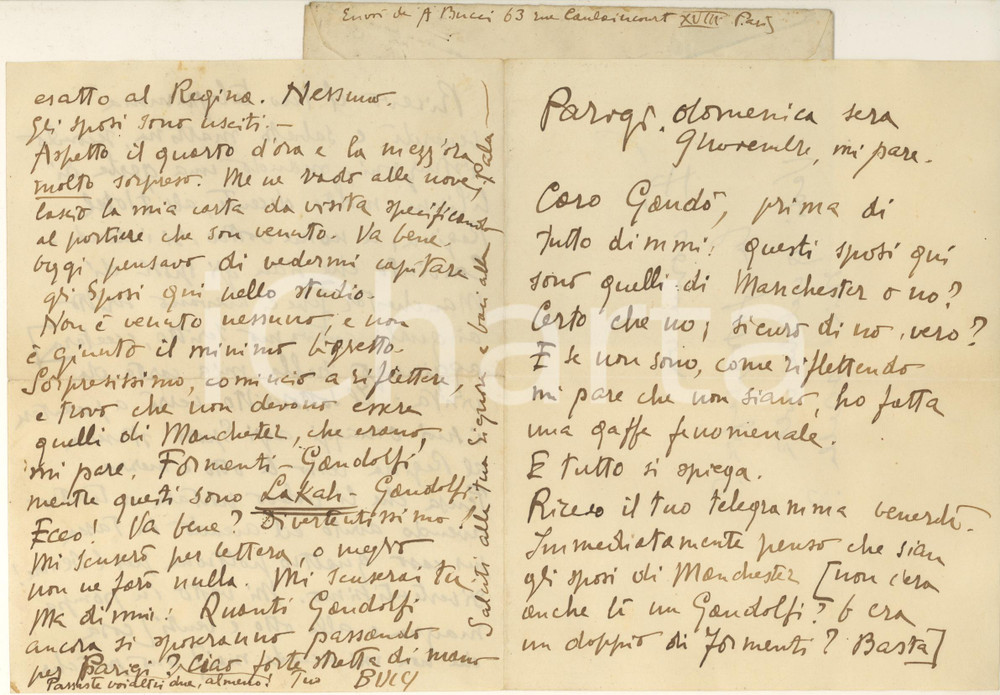 Envoi de A Bucci 63 rue Caulaincourt XVIII Paris
Parigi. domenica sera
9 novembre, mi pare.
Caro Gandò, prima di
tutto dimmi: questi sposi qui
sono quelli di Manchester o no?
Certo che no; sicuro di no, vero?
E se non sono, come riflettendo
mi pare che non siano, ho fatta
una gaffe fenomenale.
E tutto si spiega.
Ricevo il tuo telegramma venerdì.
Immediatamente penso che sian
gli sposi di Manchester [non c'era
anche lì un Gandolfi? O era
un doppio di Formenti? Basta]
esatto al Regina. Nessuno.
gli sposi sono usciti.—
Aspetto il quarto d'ora e la mezz'ora
molto sorpreso. Me ne vado alle nove,
lascio la mia carta da visita specificando
al portiere che son venuto. Va bene.
Oggi pensavo di vedermi capitare
gli Sposi qui nello studio.
Non è venuto nessuno, e non
è giunto il minimo biglietto.
Sorpresissimo, comincio a riflettere,
e trovo che non devono essere
quelli di Manchester, che erano,
mi pare, Formenti-Gandolfi,
mentre questi sono Lakah-Gandolfi.
Ecco! Va bene? Divertentissimo!
Mi scuserò per lettera, o meglio
non ne farò nulla. Mi scuserai tu.
Ma dimmi! Quanti Gandolfi
ancora si sposeranno passando
per Parigi? Ciao forte stretta di mano
Passaste voialtri due, almeno! Tuo BUCI
Saluti alla tua Signora e baci alla